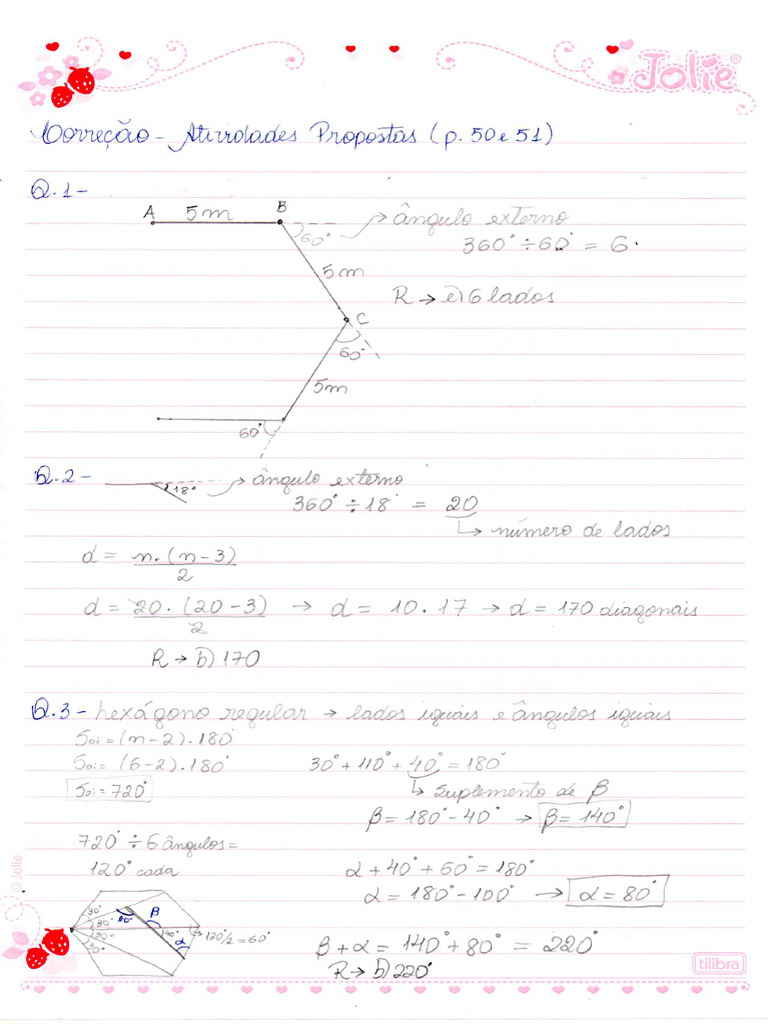 Jolie®
Correção - Atividades Propostas (p. 50 e 51)
Q.1 -
A 5m B
60° → ângulo externo
360° ÷ 60° = 6.
5m
R → e) 6 lados
C
60°
5m
60°
Q.2 - 18° → ângulo externo
360° ÷ 18° = 20
↳ número de lados
d = n.(n-3)
2
d = 20.(20-3) → d = 10.17 → d = 170 diagonais
2
R → b) 170
Q.3 - hexágono regular → lados iguais e ângulos iguais
Soi = (n-2).180°
Soi = (6-2).180°
Soi = 720°
30° + 110° + 40° = 180°
↳ suplemento de β
β = 180° - 40° → β = 140°
720° ÷ 6 ângulos =
120° cada
α + 40° + 60° = 180°
α = 180° - 100° → α = 80°
30° 30° 30° 30° 110° β 40° α
120°/2 = 60°
β + α = 140° + 80° = 220°
R → b) 220°
© Jolie
tilibra